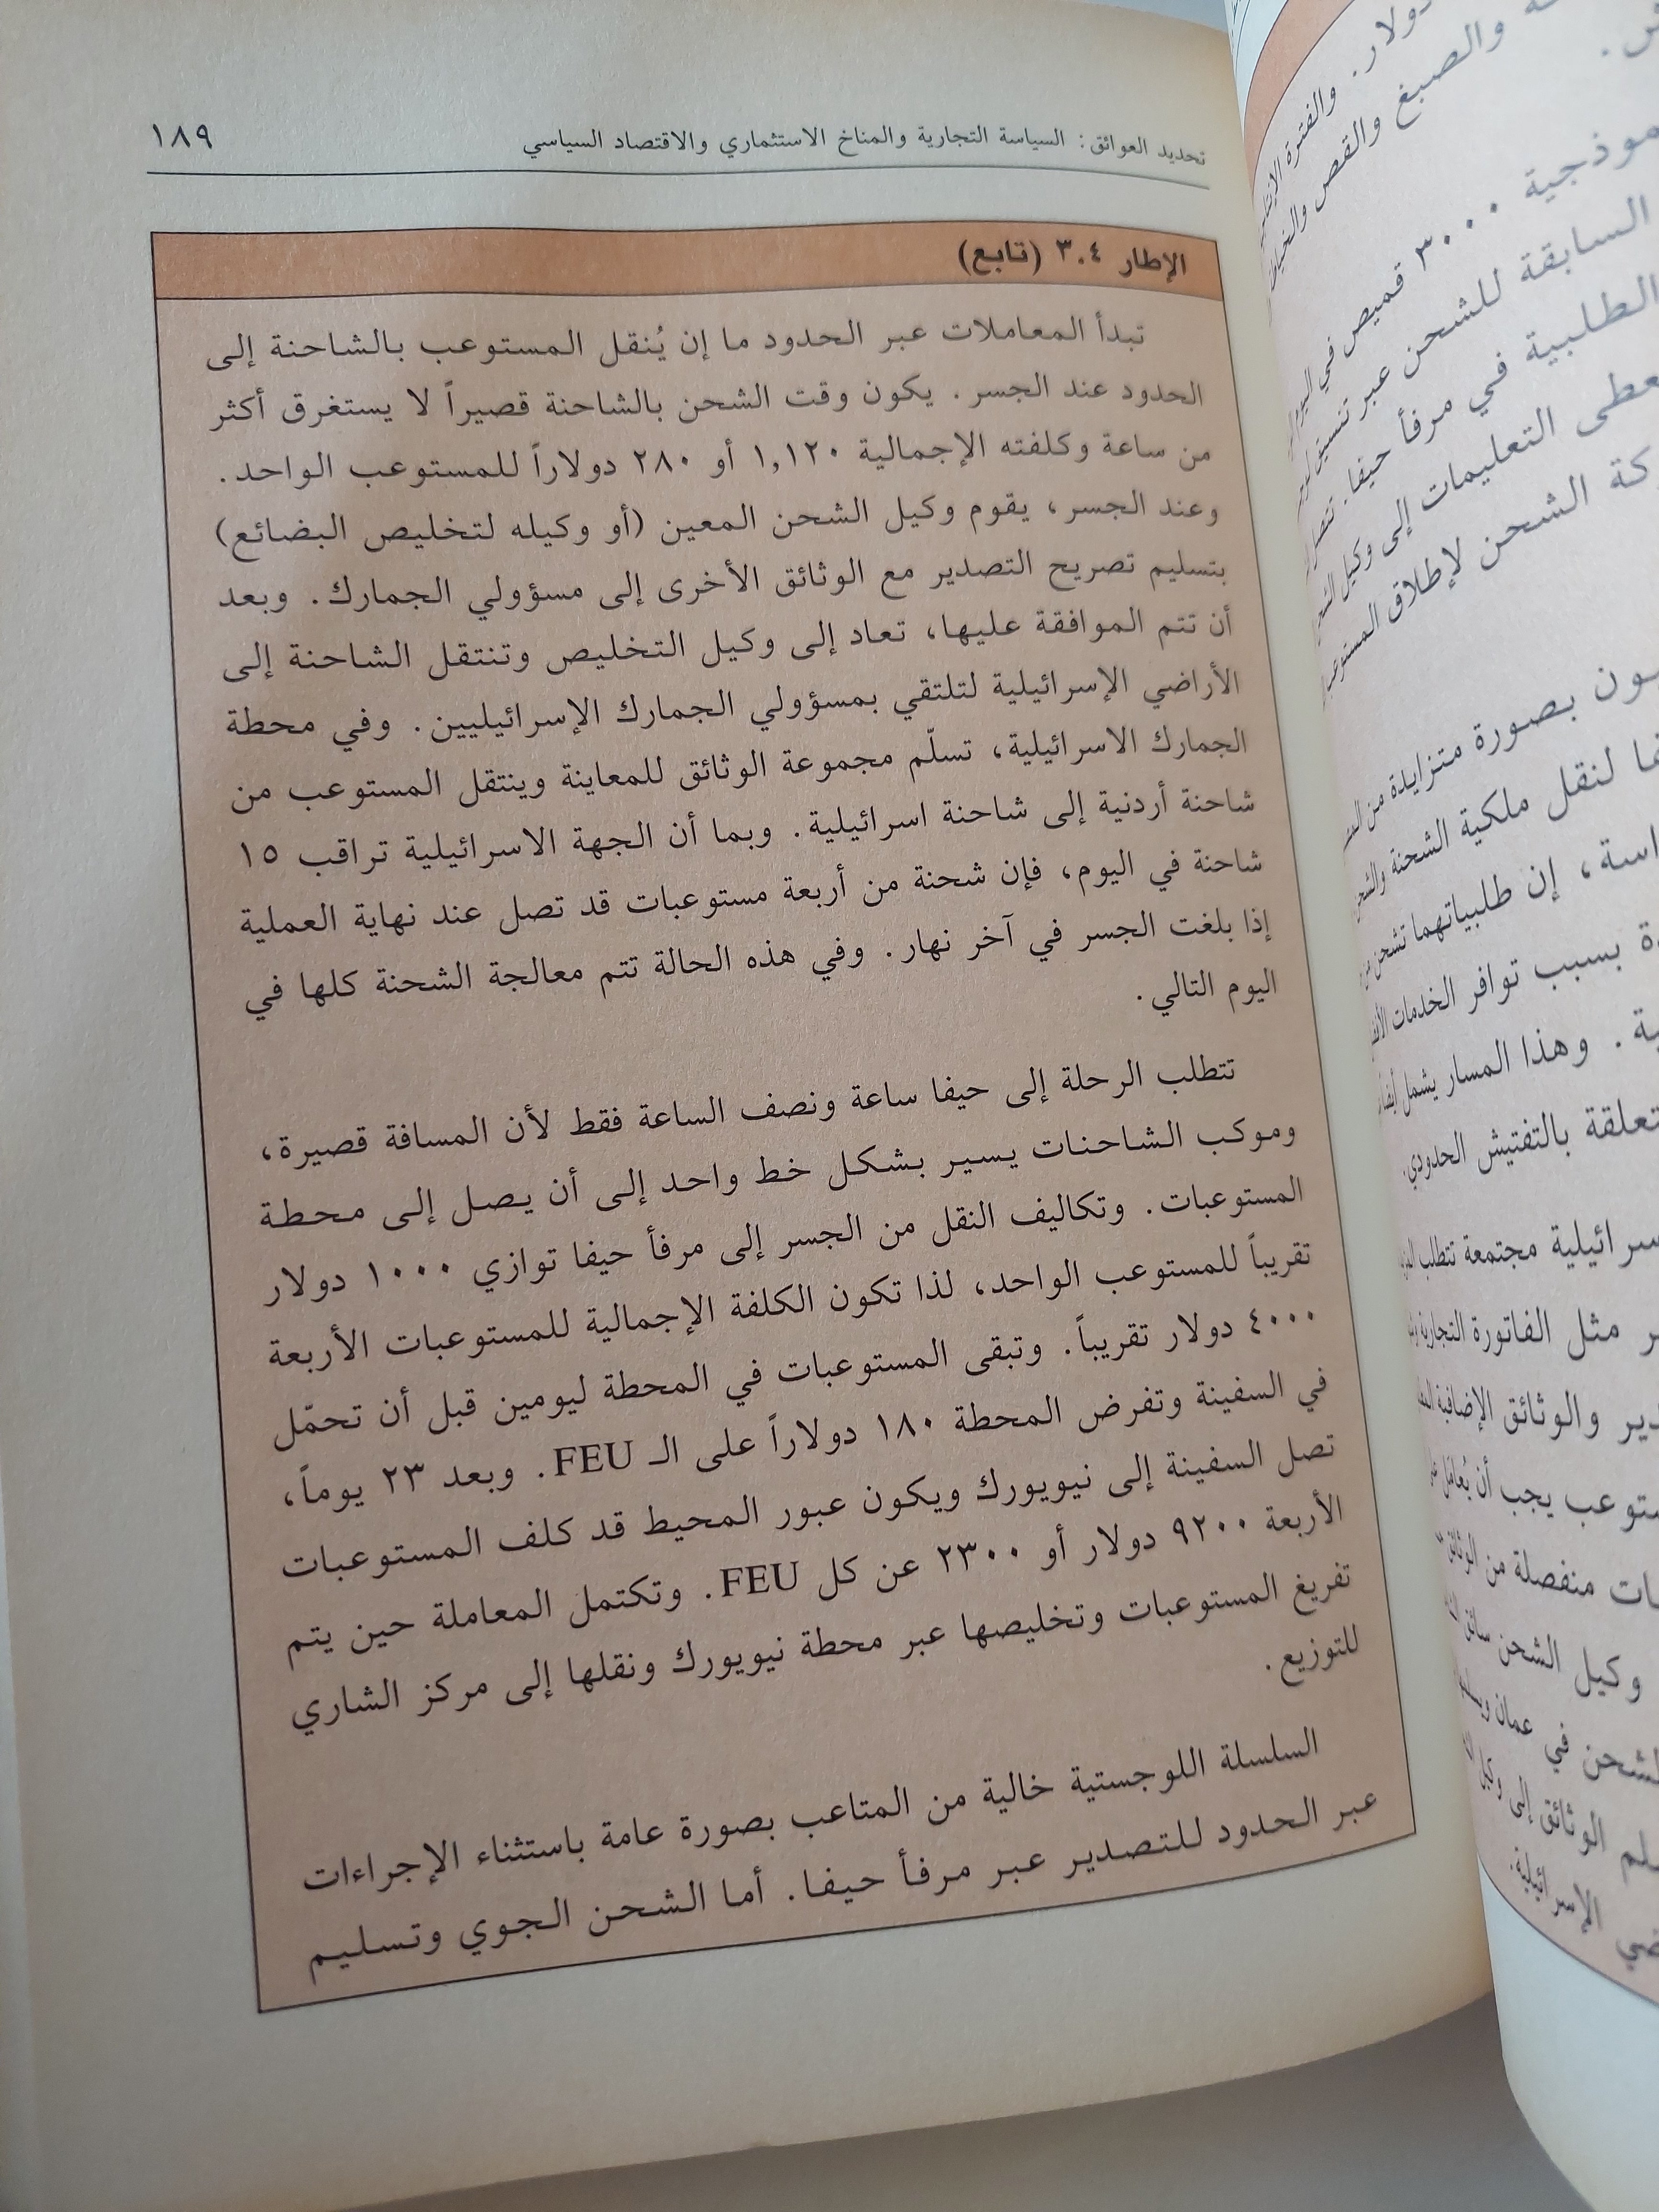 تحديد العوائق: السياسة التجارية والمناخ الاستثماري والاقتصاد السياسي ١٨٩
الإطار ٣.٤ (تابع)
تبدأ المعاملات عبر الحدود ما إن يُنقل المستوعب بالشاحنة إلى
الحدود عند الجسر. يكون وقت الشحن بالشاحنة قصيراً لا يستغرق أكثر
من ساعة وكلفته الإجمالية ١,١٢٠ أو ٢٨٠ دولاراً للمستوعب الواحد.
وعند الجسر، يقوم وكيل الشحن المعين (أو وكيله لتخليص البضائع)
بتسليم تصريح التصدير مع الوثائق الأخرى إلى مسؤولي الجمارك. وبعد
أن تتم الموافقة عليها، تعاد إلى وكيل التخليص وتنتقل الشاحنة إلى
الأراضي الإسرائيلية لتلتقي بمسؤولي الجمارك الإسرائيليين. وفي محطة
الجمارك الاسرائيلية، تسلّم مجموعة الوثائق للمعاينة وينتقل المستوعب من
شاحنة أردنية إلى شاحنة اسرائيلية. وبما أن الجهة الاسرائيلية تراقب ١٥
شاحنة في اليوم، فإن شحنة من أربعة مستوعبات قد تصل عند نهاية العملية
إذا بلغت الجسر في آخر نهار. وفي هذه الحالة تتم معالجة الشحنة كلها في
اليوم التالي.
تتطلب الرحلة إلى حيفا ساعة ونصف الساعة فقط لأن المسافة قصيرة،
وموكب الشاحنات يسير بشكل خط واحد إلى أن يصل إلى محطة
المستوعبات. وتكاليف النقل من الجسر إلى مرفأ حيفا توازي ١٠٠٠ دولار
تقريباً للمستوعب الواحد، لذا تكون الكلفة الإجمالية للمستوعبات الأربعة
٤٠٠٠ دولار تقريباً. وتبقى المستوعبات في المحطة ليومين قبل أن تحمّل
في السفينة وتفرض المحطة ١٨٠ دولاراً على الـ FEU. وبعد ٢٣ يوماً،
تصل السفينة إلى نيويورك ويكون عبور المحيط قد كلف المستوعبات
الأربعة ٩٢٠٠ دولار أو ٢٣٠٠ عن كل FEU. وتكتمل المعاملة حين يتم
تفريغ المستوعبات وتخليصها عبر محطة نيويورك ونقلها إلى مركز الشاري
للتوزيع.
السلسلة اللوجستية خالية من المتاعب بصورة عامة باستثناء الإجراءات
عبر الحدود للتصدير عبر مرفأ حيفا. أما الشحن الجوي وتسليم
دولار. والفترة
والصبغ والقص
موذجية ٣٠٠٠ قميص في
السابقة للشحن عبر
الطلبية في مرفأ حيفا.
التعليمات إلى وكيل
الشحن لإطلاق المستوعب
بصورة متزايدة من
لنقل ملكية الشحنة
إن طلبياتهما تشحن
بسبب توافر الخدمات
وهذا المسار يشمل أيضاً
بالتفتيش الحدودي.
مجتمعة تتطلب
مثل الفاتورة التجارية
والوثائق الإضافية
يجب أن يُعامل
منفصلة من الوثائق
وكيل الشحن سائق
في عمان
الوثائق إلى وكيل
الإسرائيلية.